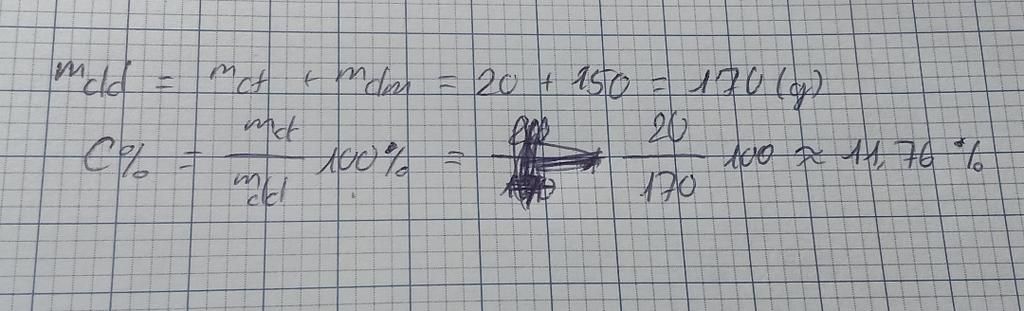 mdd = mct + mdm = 20 + 150 = 170 (g)
C% = mct/mdd 100% = 20/170 100 ≈ 11,76 %